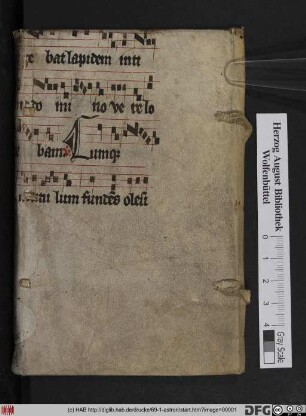 bat lapidem inti
no ve te lo
bam Cumqʒ
lum fundēs olest
Herzog August Bibliothek
Wolfenbüttel
0 1 2 3 4
Gray Scale
(c) HAB http://diglib.hab.de/drucke/69-1-astron/start.htm?image=00001
DFG